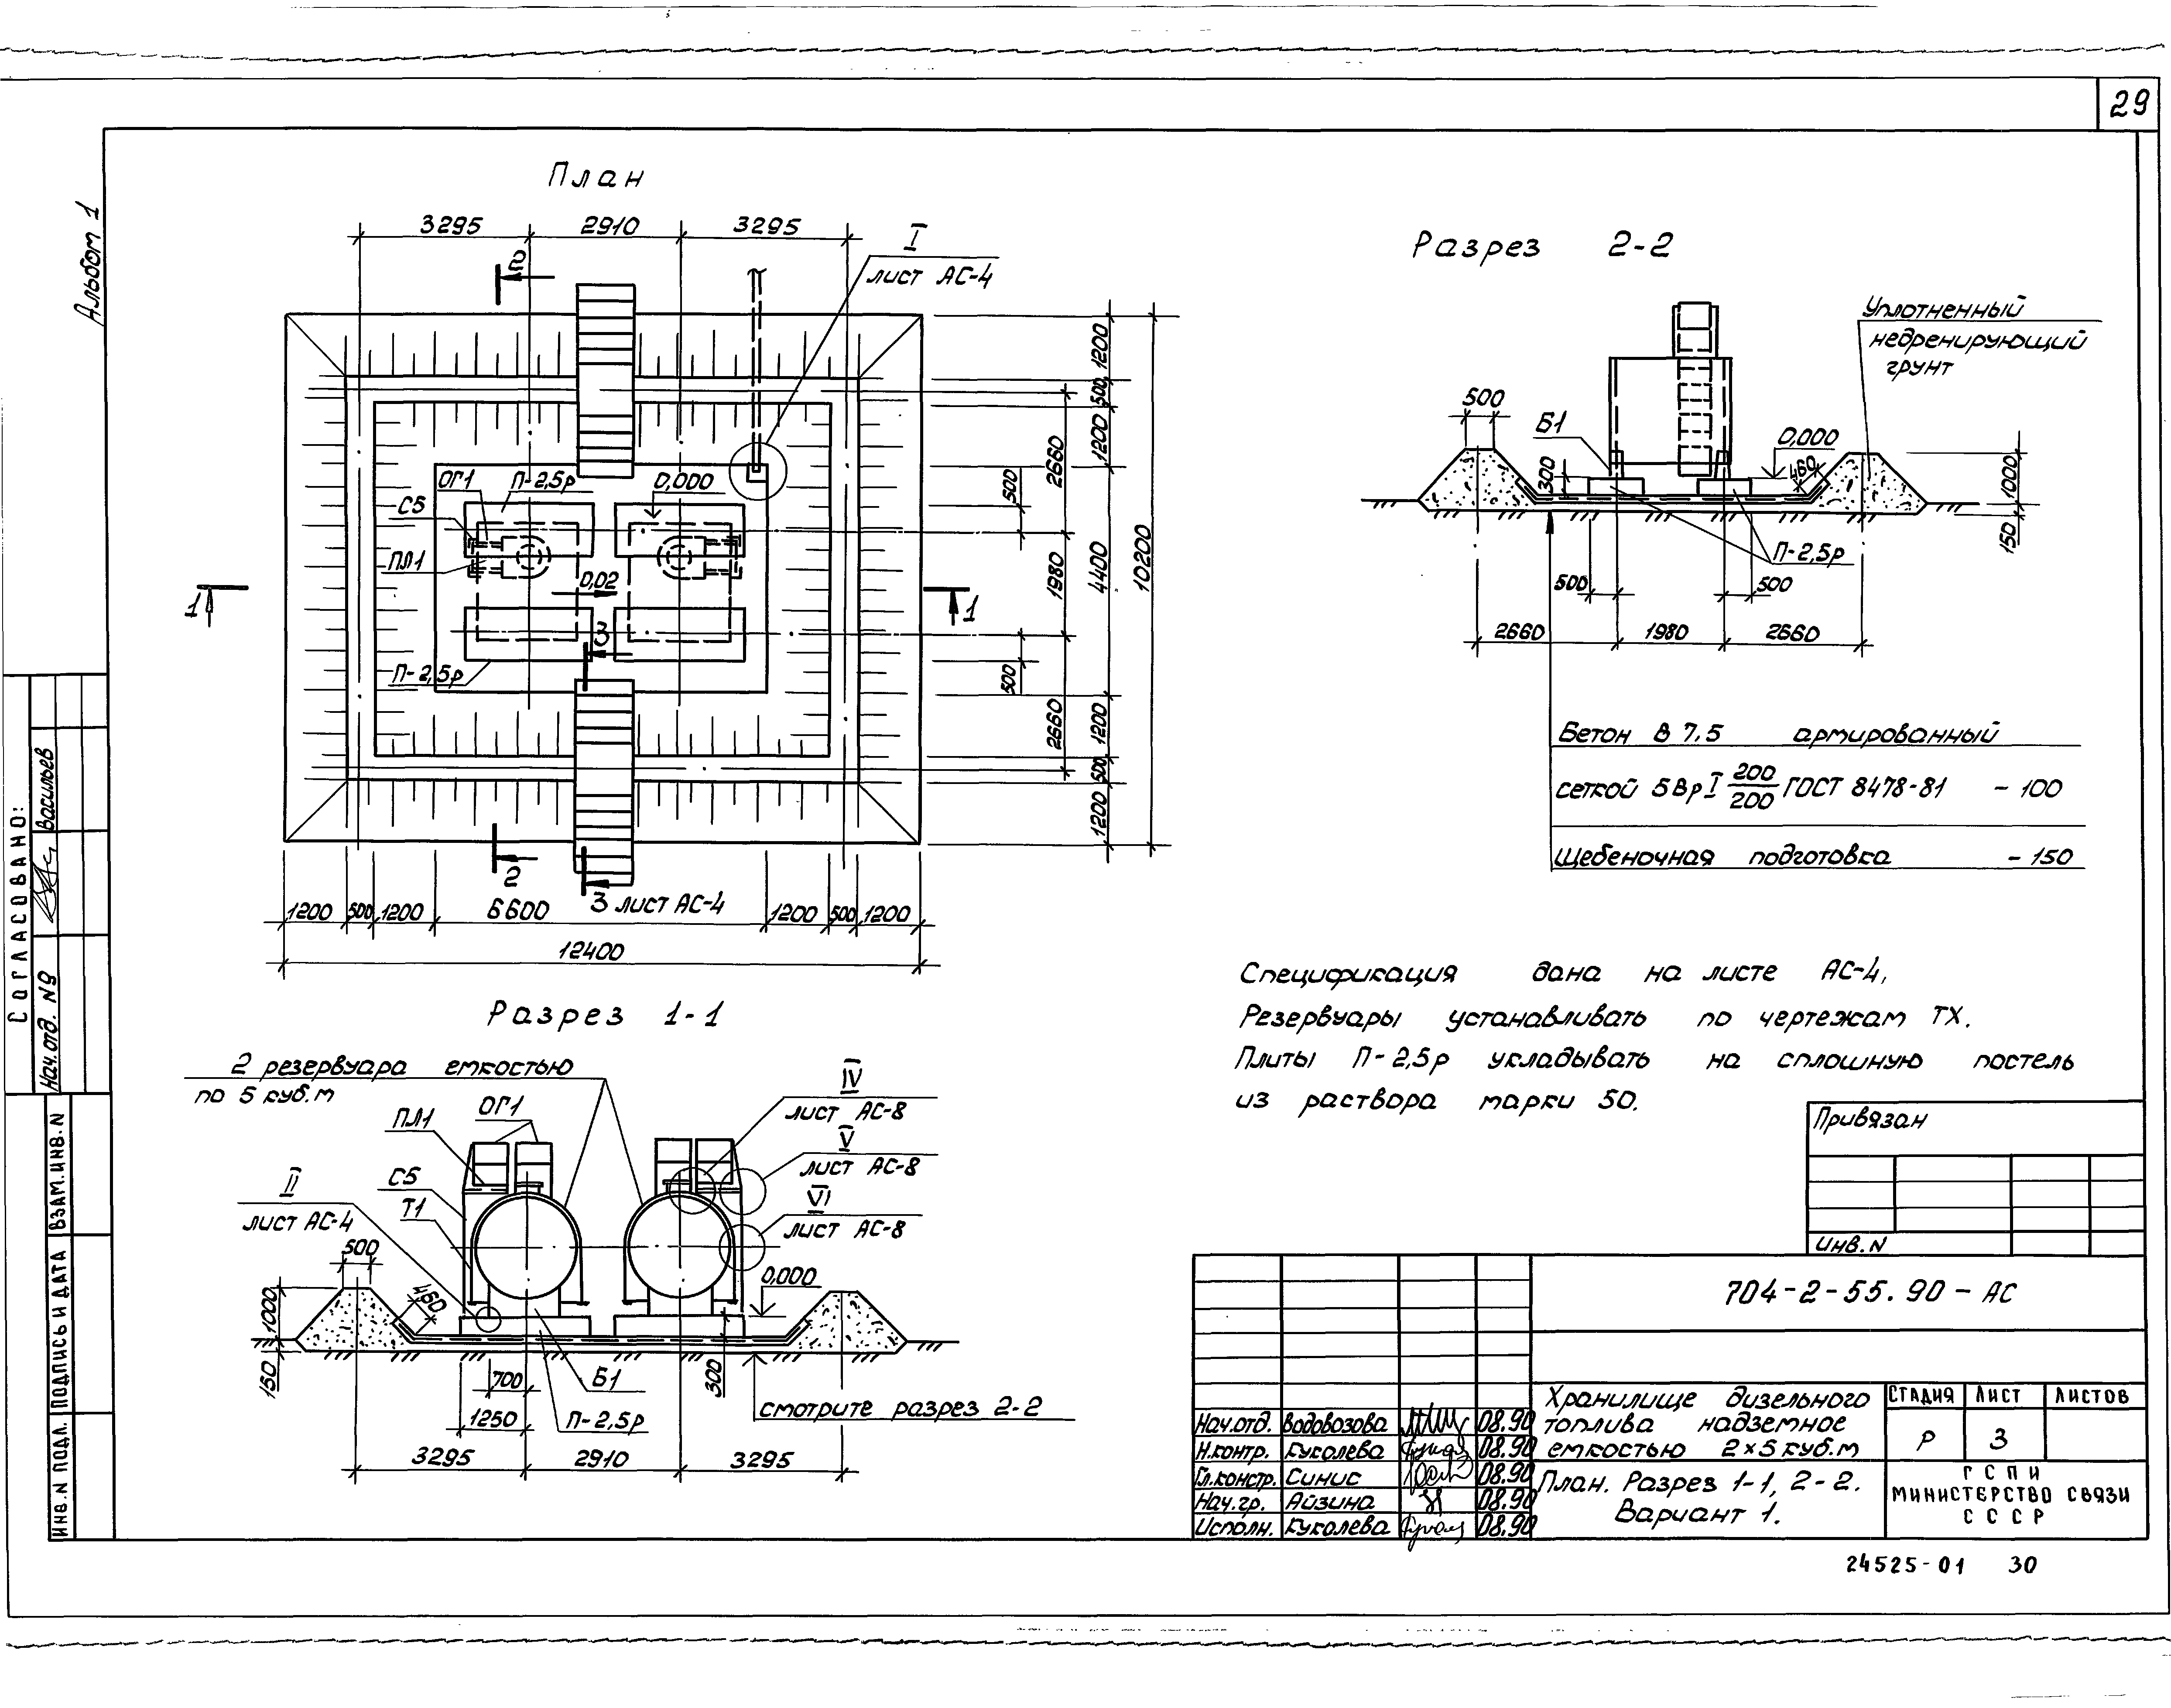 29
Альбом 1
План
3295 2910 3295
2
I
лист АС-4
ОГ1
П-2,5р
0,000
С5
ПЛ1
0,02
1 1
3
П-2,5р
500
500
2660
1980
2660
1200
500
1200
4400
1200
500
1200
10200
2
3 лист АС-4
1200 500 1200 6600 1200 500 1200
12400
Разрез 2-2
Уплотненный
недренирующий
грунт
500
Б1
300
0,000
460
1000
150
П-2,5р
500 500
2660 1980 2660
Бетон В 7,5 армированный
сеткой 5ВрI 200/200 ГОСТ 8478-81 - 100
Щебеночная подготовка - 150
Разрез 1-1
2 резервуара емкостью
по 5 куб.м
ПЛ1
ОГ1
IV
лист АС-8
V
лист АС-8
VI
лист АС-8
С5
Т1
II
лист АС-4
500
460
1000
150
0,000
300
700
Б1
1250
П-2,5р
смотрите разрез 2-2
3295 2910 3295
Спецификация дана на листе АС-4,
Резервуары устанавливать по чертежам ТХ.
Плиты П-2,5р укладывать на сплошную постель
из раствора марки 50.
Привязан
Инв.N
704-2-55.90-АС
Хранилище дизельного
топлива надземное
емкостью 2×5 куб.м
Стадия Лист Листов
Р 3
План. Разрез 1-1, 2-2.
Вариант 1.
ГСПИ
Министерство связи
СССР
Нач.отд. Водовозова 08.90
Н.контр. Куколева 08.90
Гл.констр. Синис 08.90
Нач.гр. Айзина 08.90
Исполн. Куколева 08.90
24525-01 30
Согласовано:
Нач.отд. N9 Васильев
Взам.инв.N
Подпись и дата
Инв.N подл.